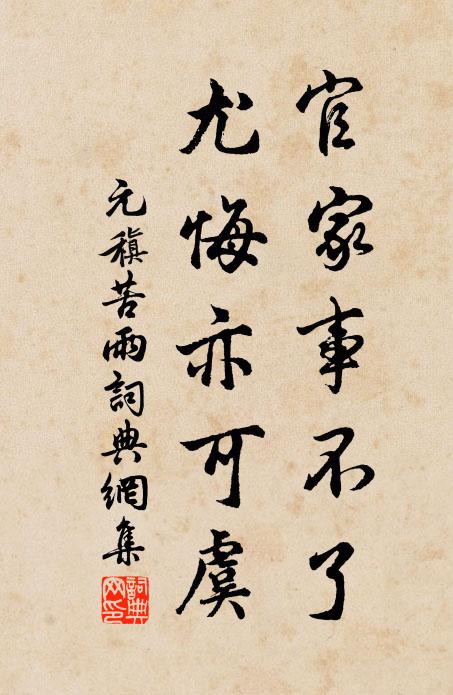 官家事不了
尤悔亦可虞
元稹苦雨詞典網集
詞典網印